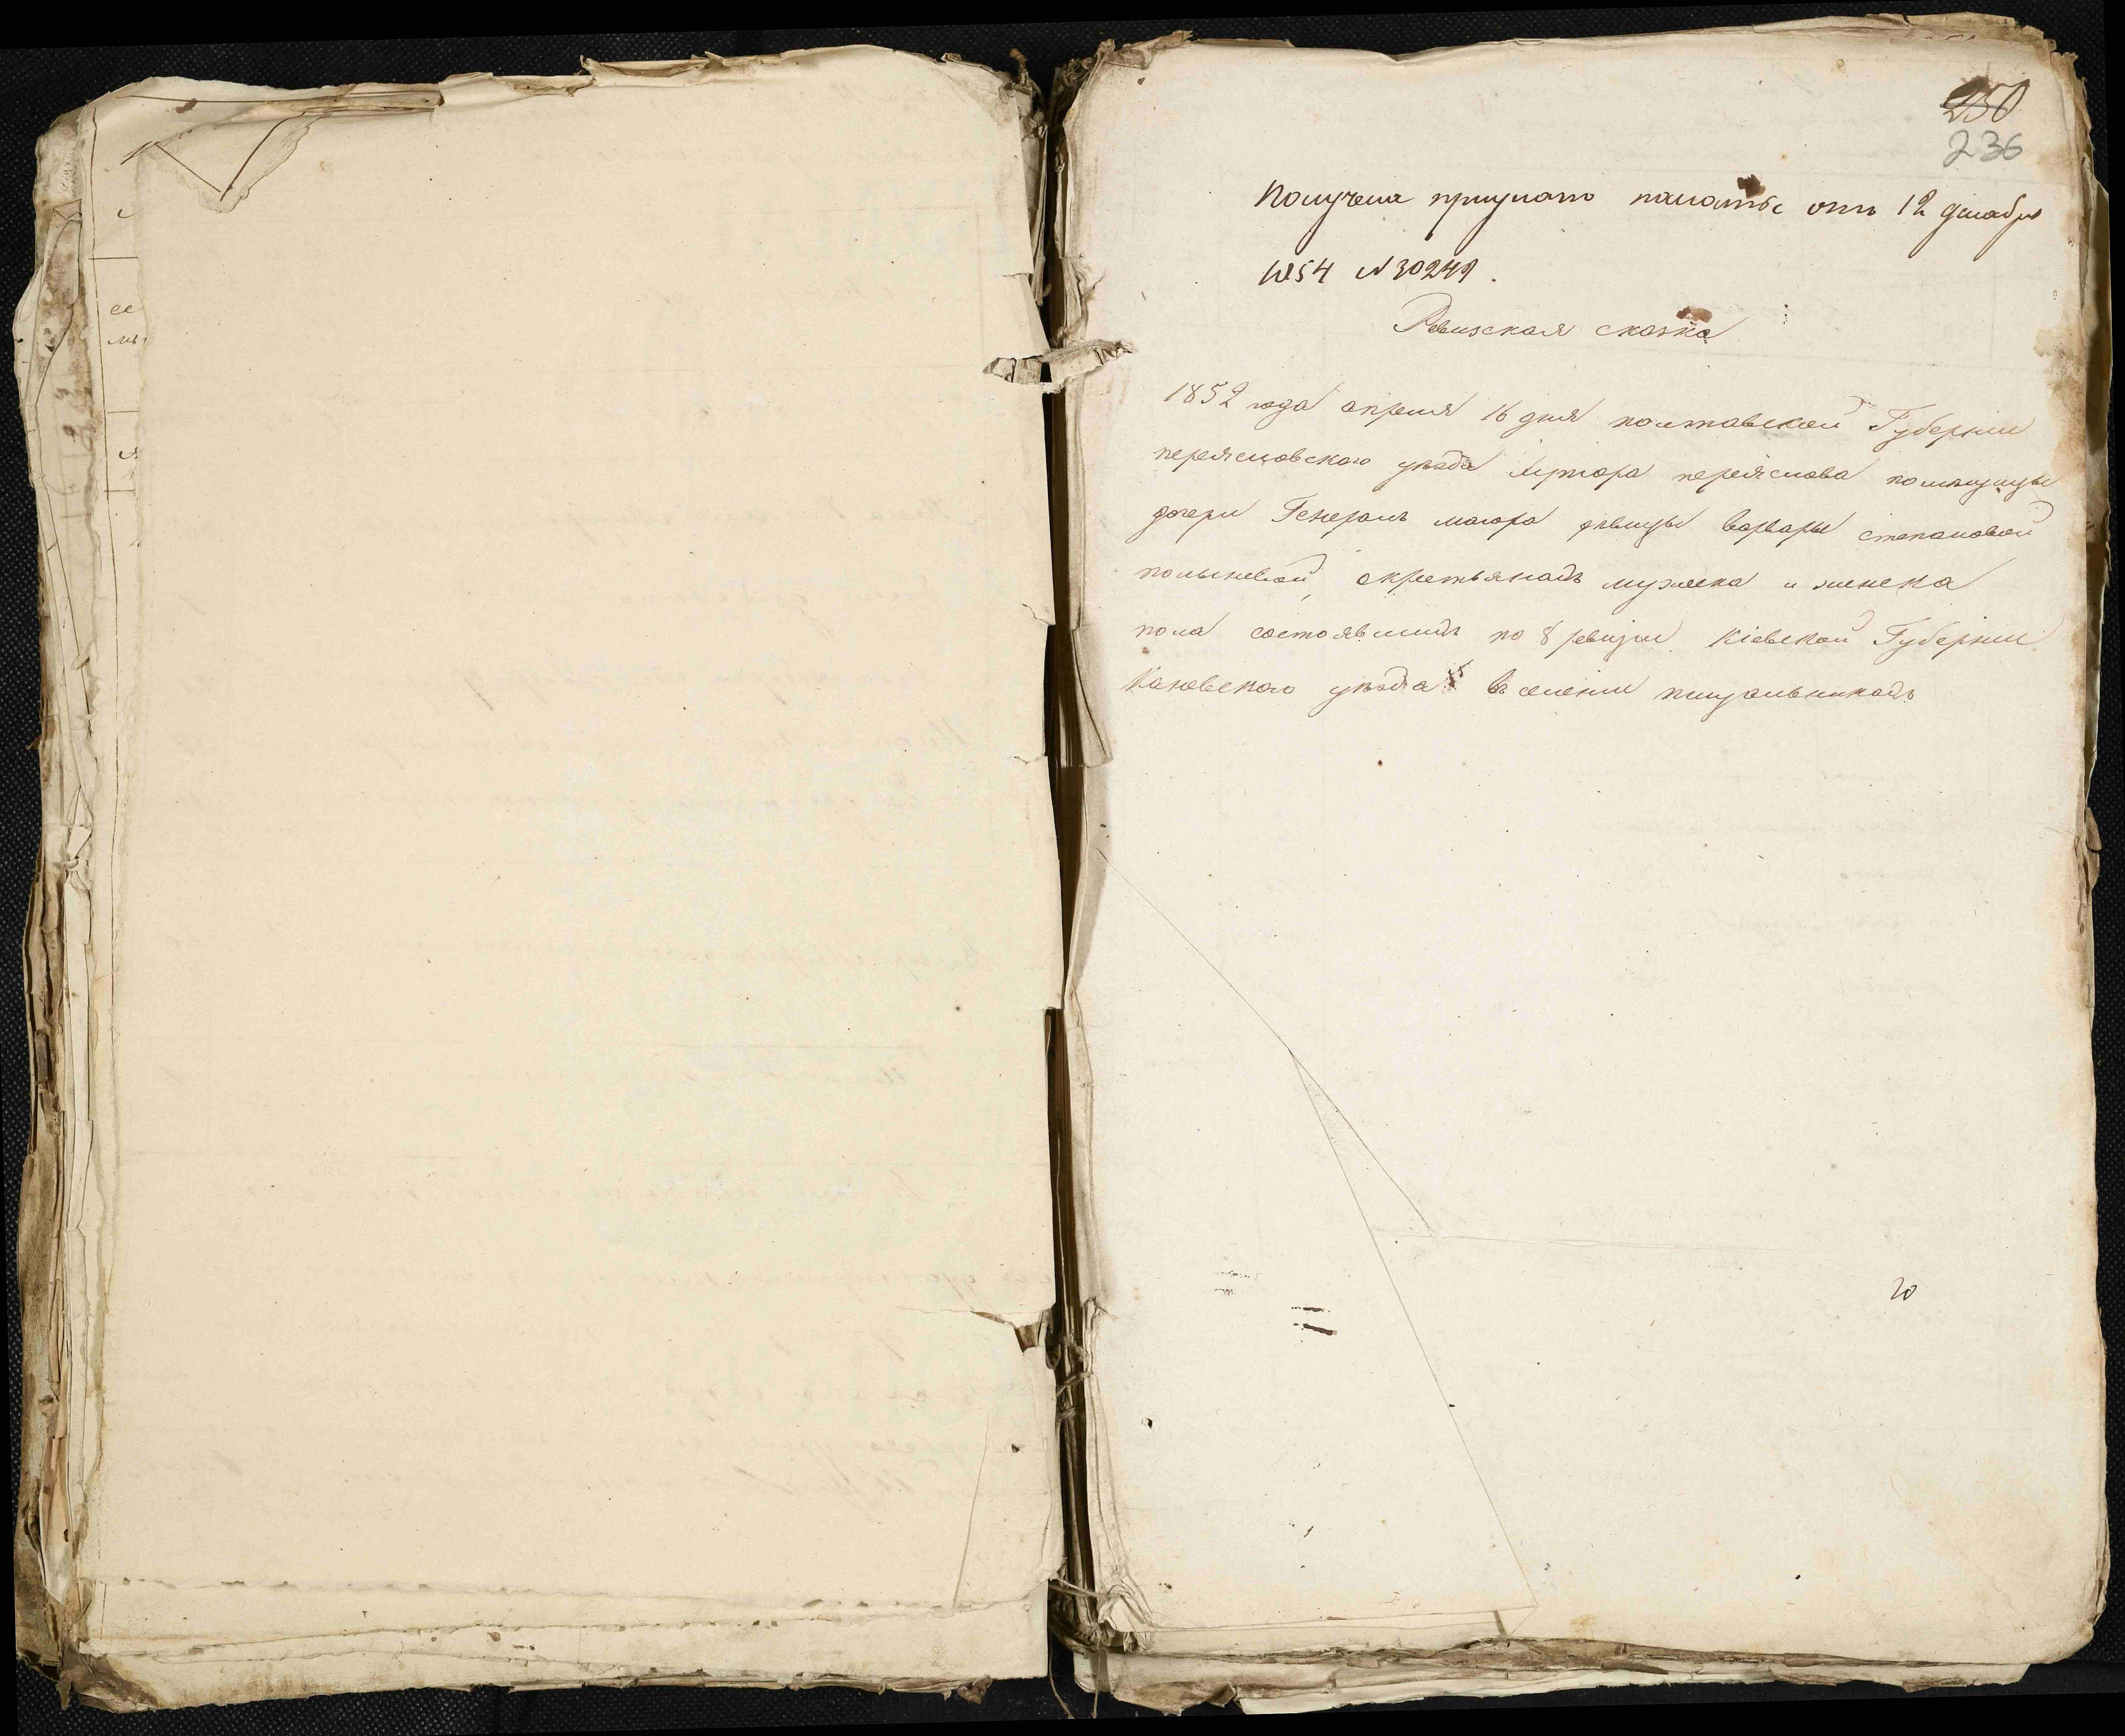 250
236
Получена при указъ палаты отъ 12 декабря
1854 N 30249.
Ревизская сказка
1852 года апреля 16 дня полтавской Губерніи
переяславского уезда хутора переяслова помещицы
дочери Генералъ маіора девицы варвары степановой
полыневой, окрестьянахъ мужеска и женска
пола состоявшихъ по 8 ревизіи Кіевской Губерніи
Каневского уезда в селении пищальникахъ
20